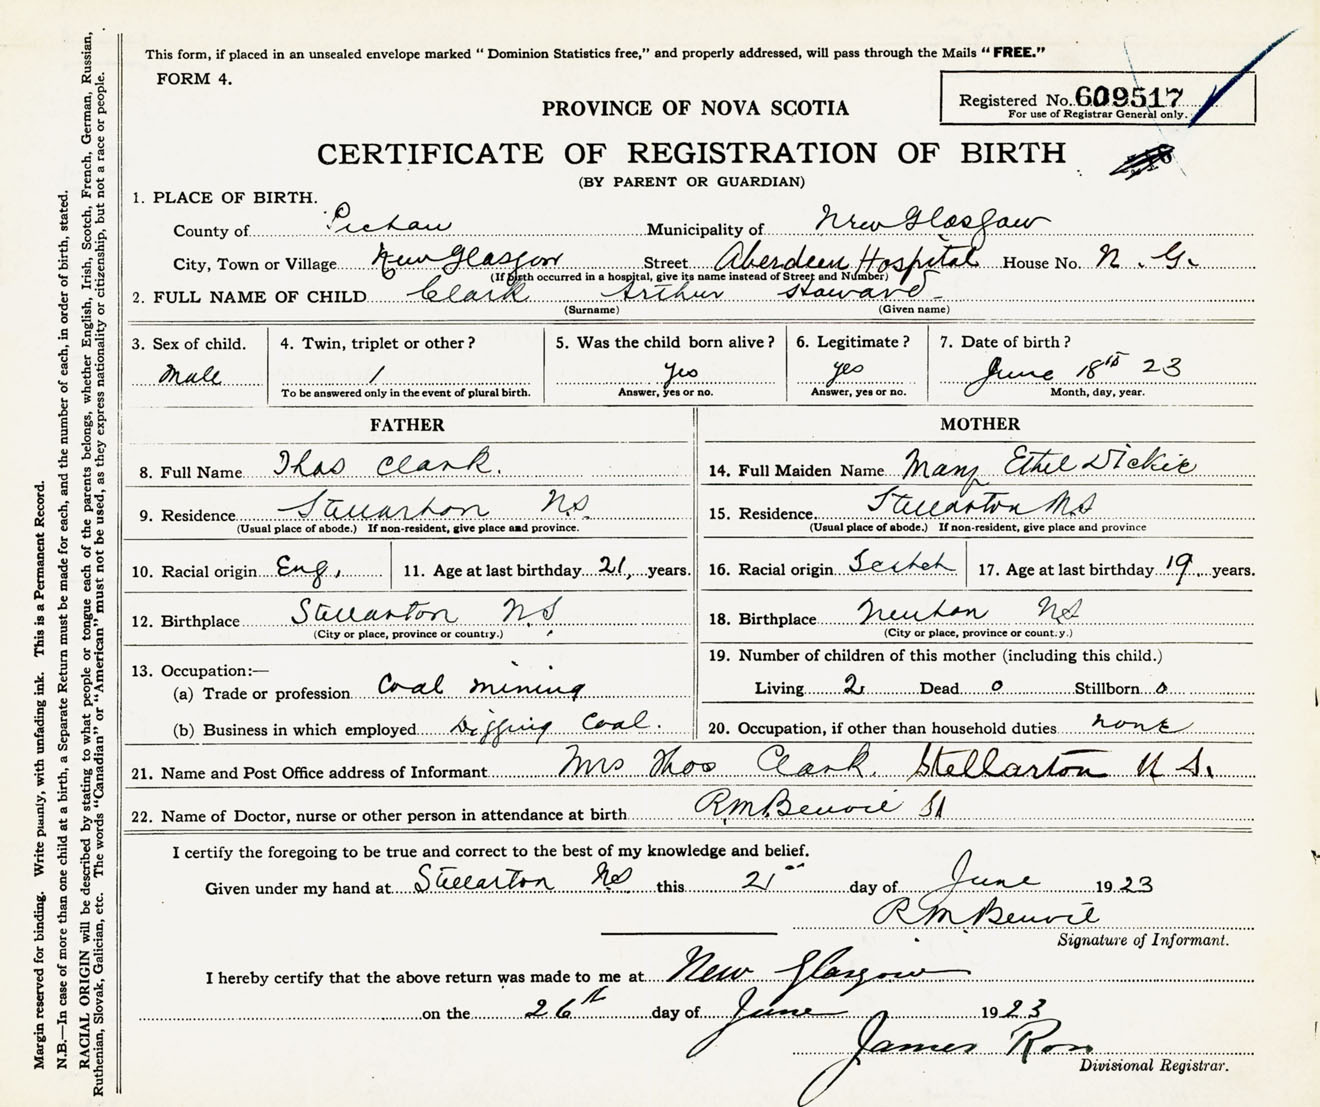 This form, if placed in an unsealed envelope marked “ Dominion Statistics free,” and properly addressed, will pass through the Mails “ FREE.”
FORM 4.
Registered No. 609517
For use of Registrar General only.
PROVINCE OF NOVA SCOTIA
CERTIFICATE OF REGISTRATION OF BIRTH
(BY PARENT OR GUARDIAN)
1. PLACE OF BIRTH.
County of Pictou Municipality of New Glasgow
City, Town or Village New Glasgow Street Aberdeen Hospital House No. N. G.
(If birth occurred in a hospital, give its name instead of Street and Number)
2. FULL NAME OF CHILD Clark Arthur Howard
(Surname) (Given name)
3. Sex of child. 4. Twin, triplet or other ? 5. Was the child born alive ? 6. Legitimate ? 7. Date of birth ?
Male 1 Yes yes June 18th 23
To be answered only in the event of plural birth. Answer, yes or no. Answer, yes or no. Month, day, year.
FATHER MOTHER
8. Full Name Thos Clark. 14. Full Maiden Name Mary Ethel Dickie
9. Residence Stellarton N.S. 15. Residence Stellarton NS
(Usual place of abode.) If non-resident, give place and province. (Usual place of abode.) If non-resident, give place and province
10. Racial origin Eng. 11. Age at last birthday 21 years. 16. Racial origin Scotch 17. Age at last birthday 19 years.
12. Birthplace Stellarton N.S 18. Birthplace Newton NS
(City or place, province or country.) (City or place, province or country.)
13. Occupation:— 19. Number of children of this mother (including this child.)
(a) Trade or profession Coal mining Living 2 Dead 0 Stillborn 0
(b) Business in which employed Digging Coal. 20. Occupation, if other than household duties none
21. Name and Post Office address of Informant Mrs Thos Clark. Stellarton N S.
22. Name of Doctor, nurse or other person in attendance at birth R M Benvie
I certify the foregoing to be true and correct to the best of my knowledge and belief.
Given under my hand at Stellarton NS this 21st day of June 1923
R M Benvie
Signature of Informant.
I hereby certify that the above return was made to me at New Glasgow
on the 26th day of June 1923
James Ross
Divisional Registrar.
Margin reserved for binding. Write plainly, with unfading ink. This is a Permanent Record.
N.B.—In case of more than one child at a birth, a Separate Return must be made for each, and the number of each, in order of birth, stated.
RACIAL ORIGIN will be described by stating to what people or tongue each of the parents belongs, whether English, Irish, Scotch, French, German, Russian,
Ruthenian, Slovak, Galician, etc. The words “Canadian” or “American” must not be used, as they express nationality or citizenship, but not a race or people.